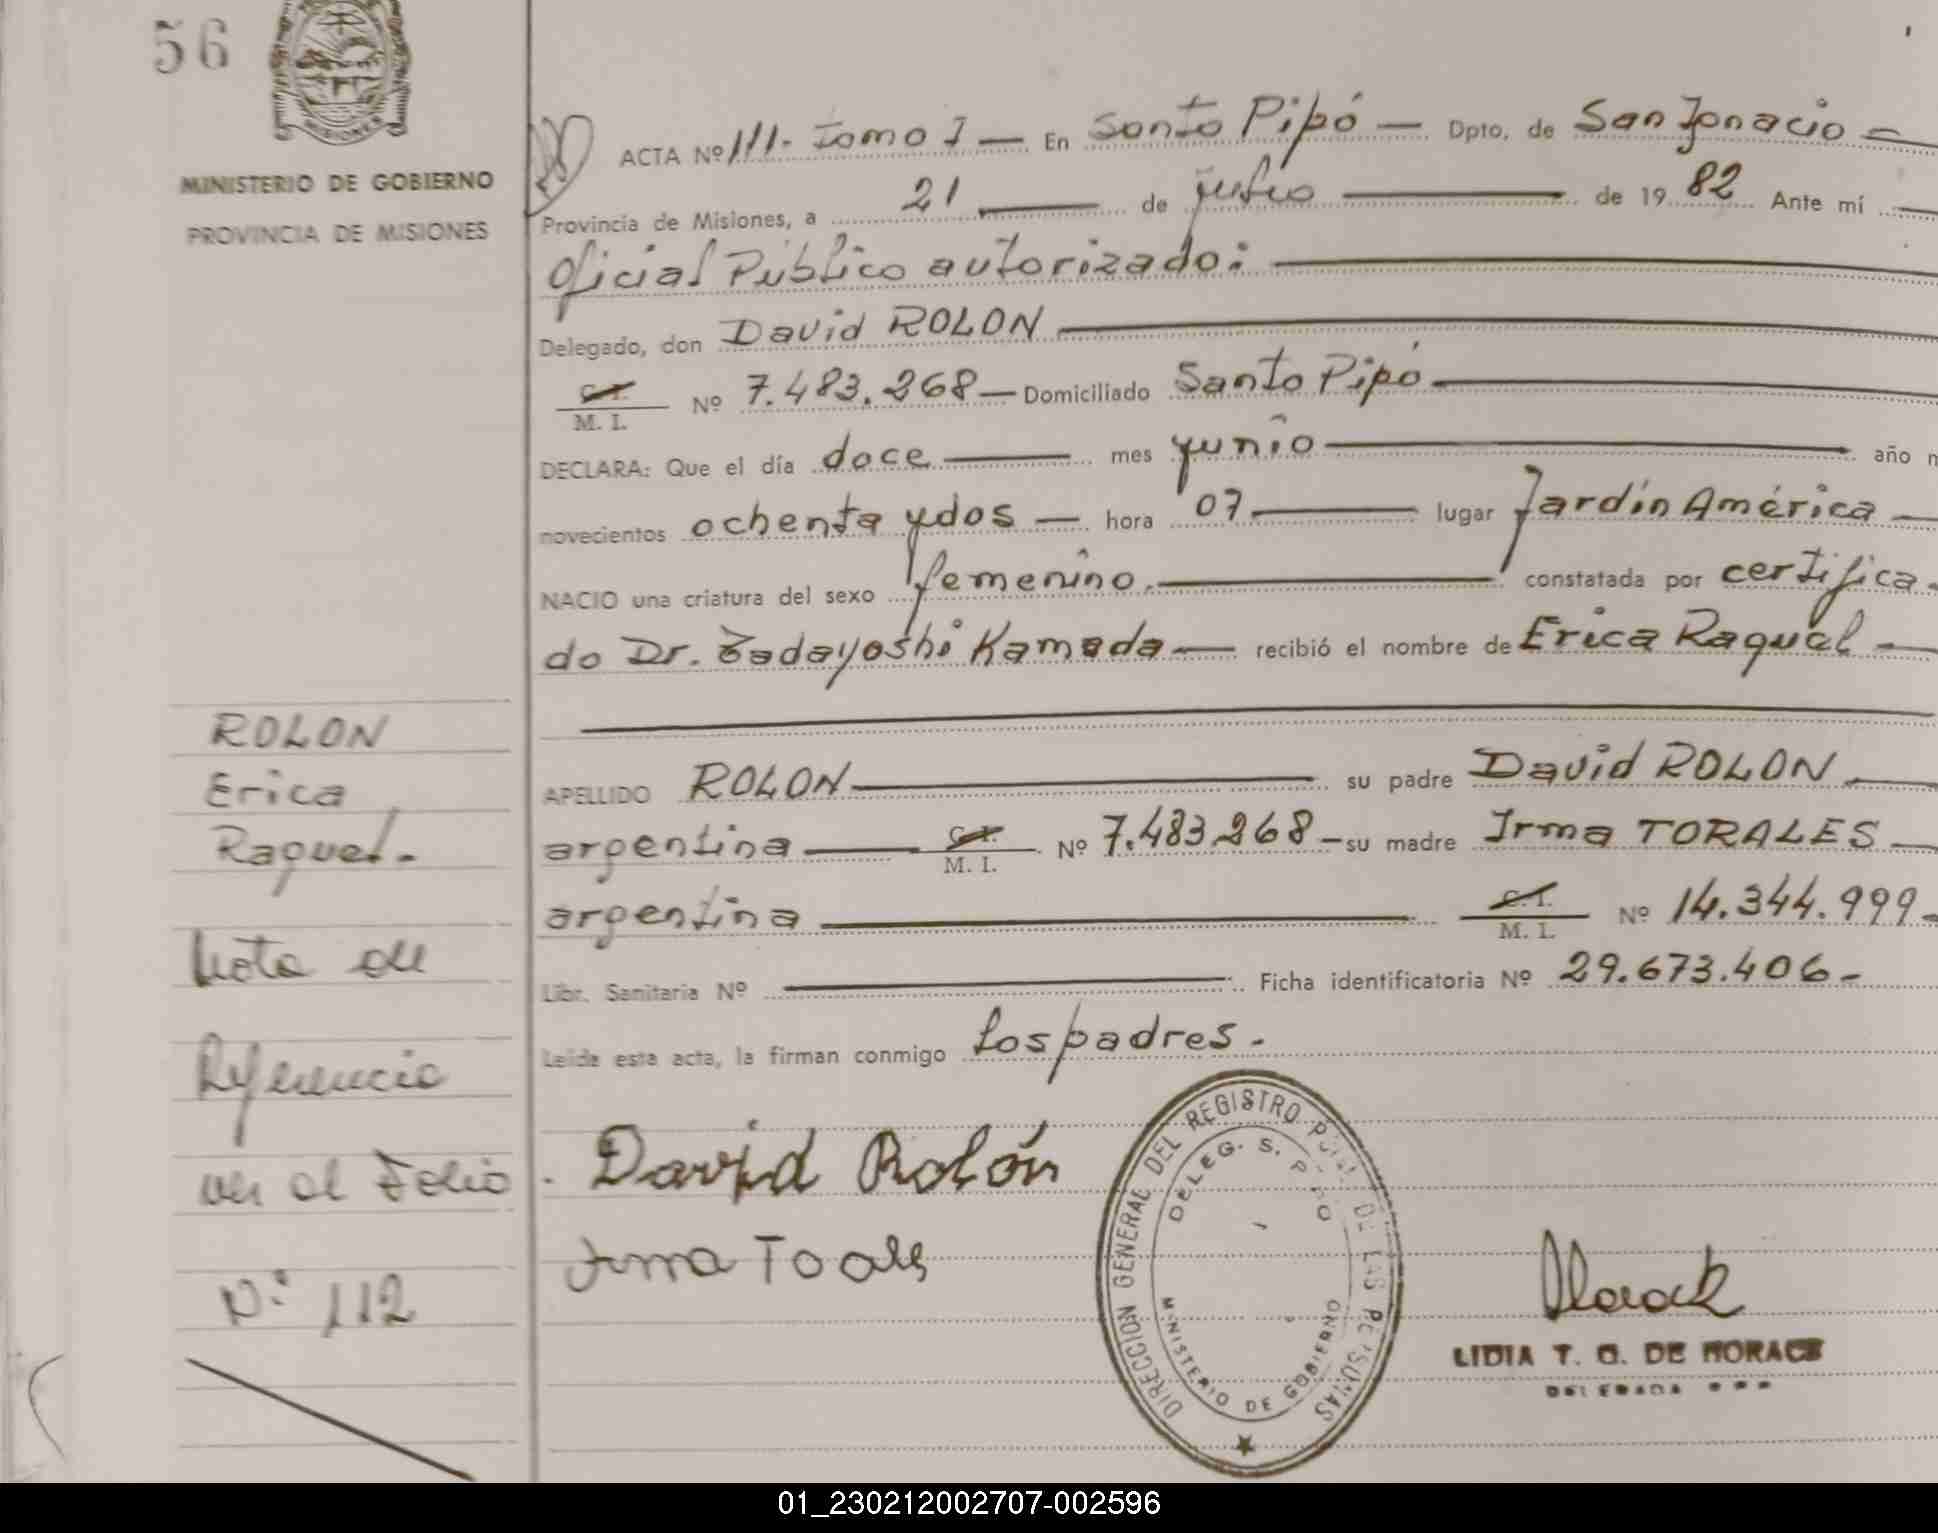 56
MISIONES
MINISTERIO DE GOBIERNO
PROVINCIA DE MISIONES
ACTA Nº 111. Tomo I — En Santo Pipó — Dpto, de San Ignacio —
Provincia de Misiones, a 21 de julio de 19 82 Ante mí
Oficial Público autorizado:
Delegado, don David ROLON
C. I.
M. I. Nº 7.483.268 — Domiciliado Santo Pipó
DECLARA: Que el día doce mes yunio año
novecientos ochenta y dos — hora 07 lugar Jardín América —
NACIO una criatura del sexo femenino. constatada por certifica-
do Dr. Tadayoshi Kamada — recibió el nombre de Erica Raquel —
APELLIDO ROLON su padre David ROLON
argentina C. I. M. I. Nº 7.483.268 — su madre Irma TORALES
argentina C. I. M. I. Nº 14.344.999-
Libr. Sanitaria Nº Ficha identificatoria Nº 29.673.406-
Leída esta acta, la firman conmigo los padres.
ROLON
Erica
Raquel.-
Nota de
Referencia
ver al Folio
Nº 112
David Rolón
Irma Toales
DIRECCION GENERAL DEL REGISTRO PCIAL DE LAS PERSONAS
DELEG. S. PIPO
MINISTERIO DE GOBIERNO
LIDIA T. G. DE HORACK
DELEGADA
01_230212002707-002596